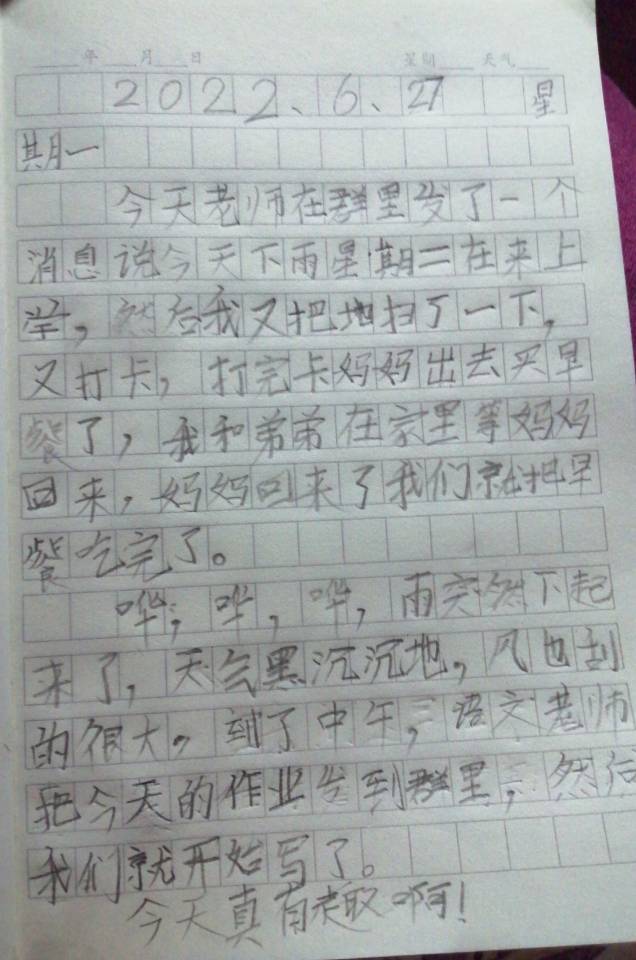 年 月 日 星期 天气
2022、6、27 星
期一
今天老师在群里发了一个
消息说今天下雨星期二在来上
学，然后我又把地扫了一下，
又打卡，打完卡妈妈出去买早
餐了，我和弟弟在家里等妈妈
回来，妈妈回来了我们就把早
餐吃完了。
哗，哗，哗，雨突然下起
来了，天气黑沉沉地，风也刮
的很大。到了中午，语文老师
把今天的作业发到群里，然后
我们就开始写了。
今天真有趣啊！